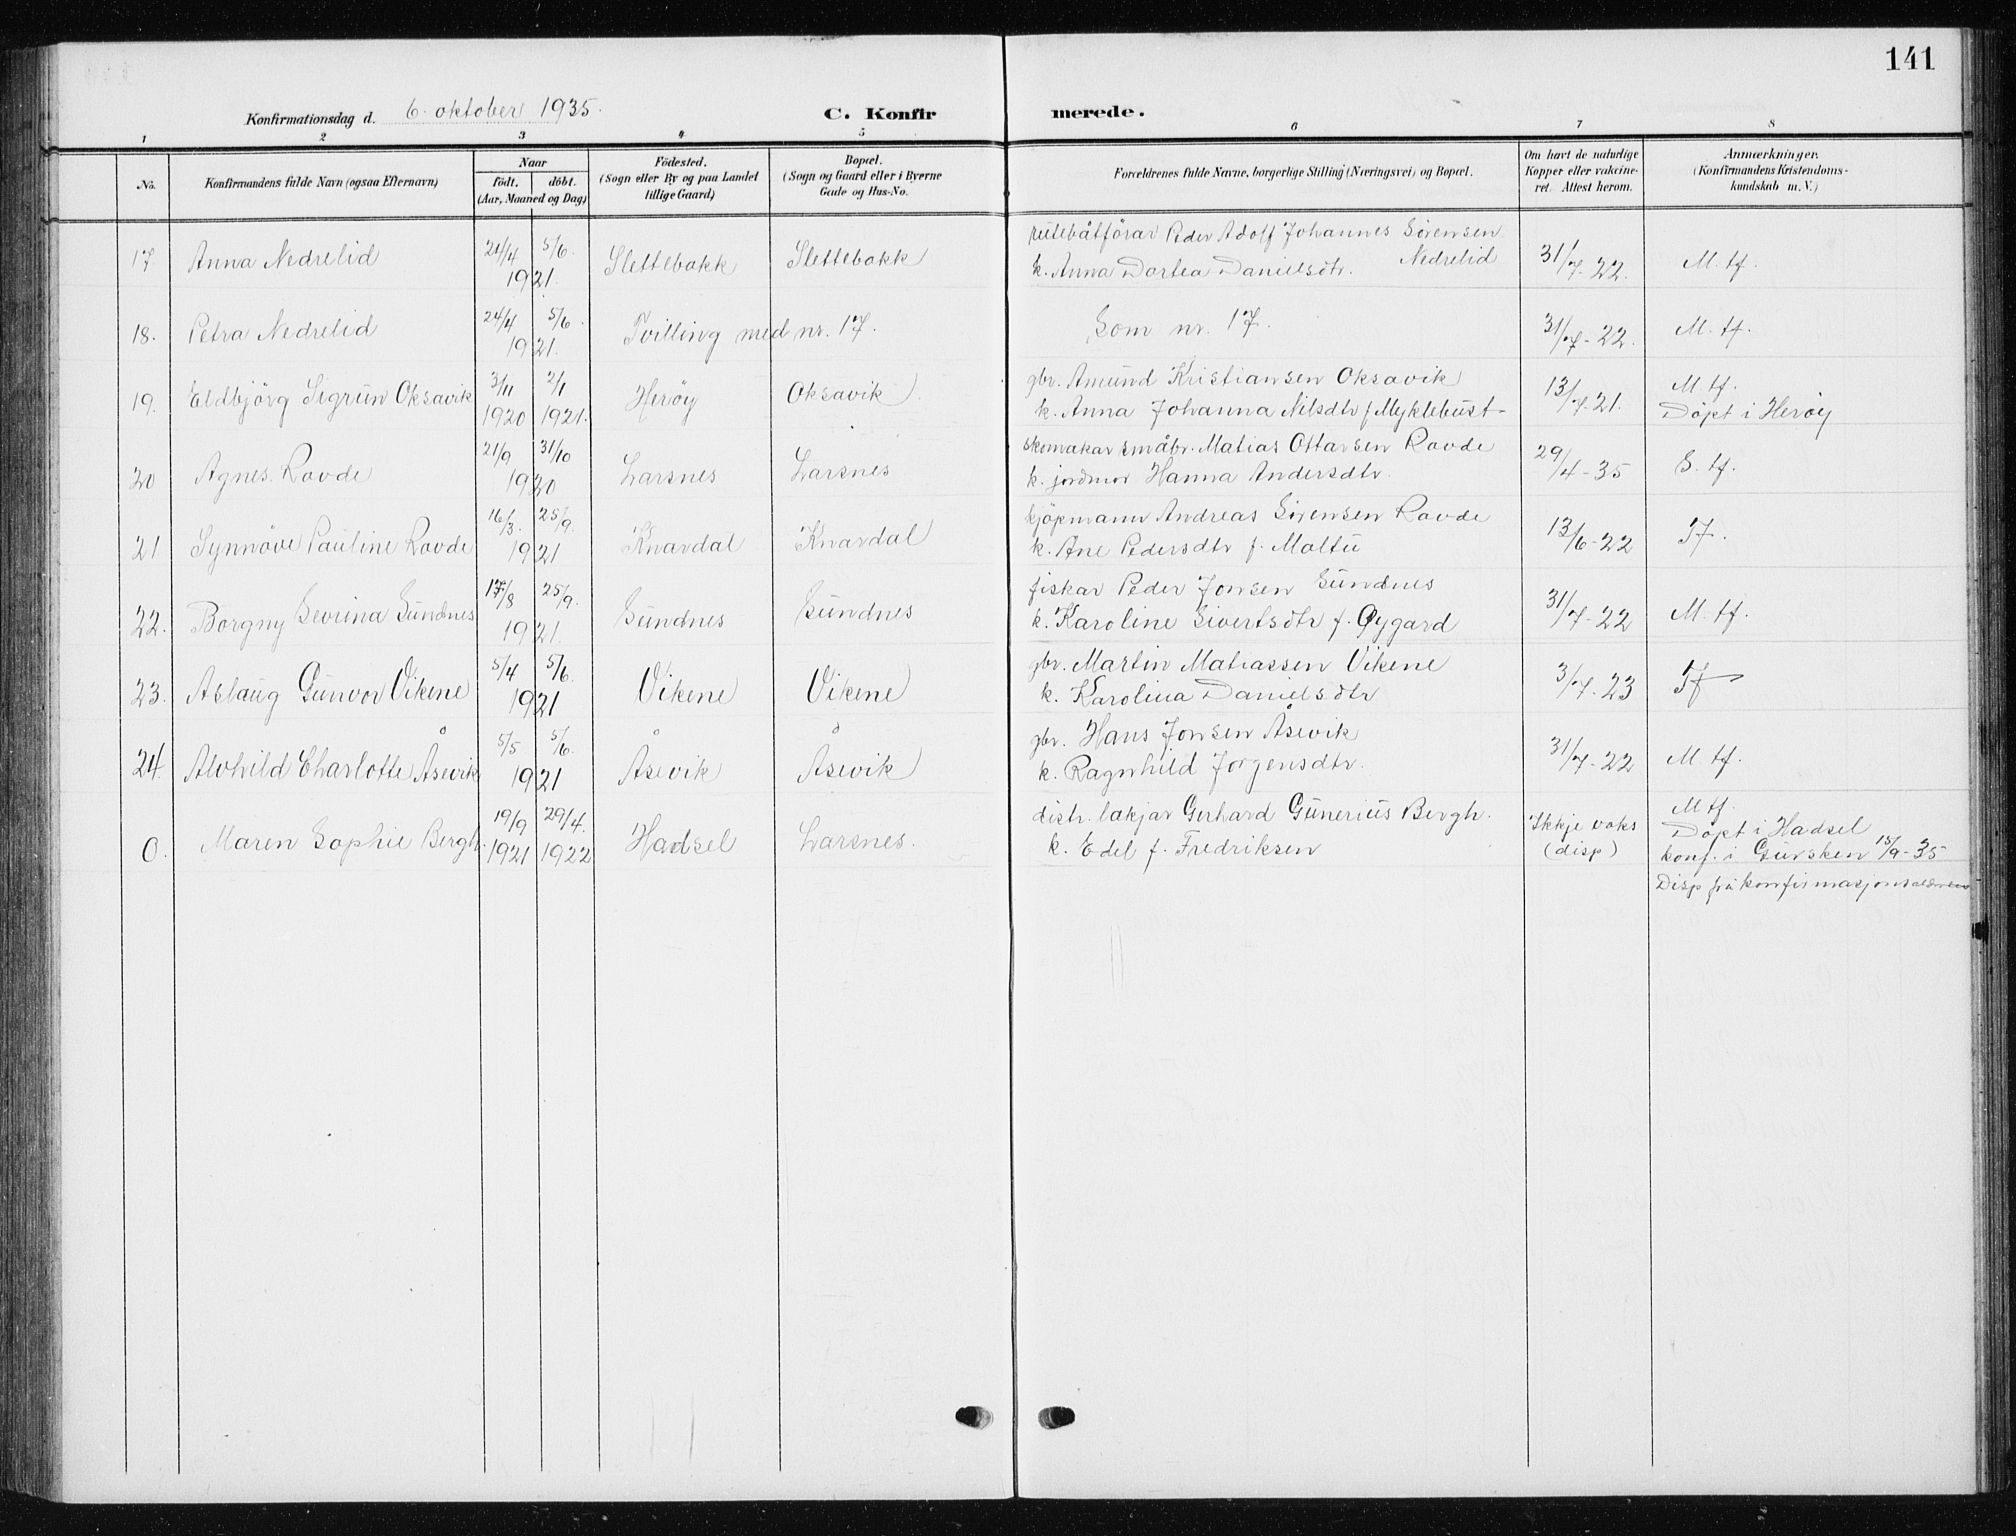 141
Konfirmationsdag d. 6. oktober 1935.
C. Konfirmerede.
1 2 3 4 5 6 7 8
No.
Konfirmandens fulde Navn (ogsaa Efternavn)
Naar
födt. döbt.
(Aar, Maaned og Dag)
Födested.
(Sogn eller By og paa Landet
tillige Gaard)
Bopæl.
(Sogn og Gaard eller i Byerne
Gade og Hus-No.
Forældrenes fulde Navne, borgerlige Stilling (Næringsvei) og Bopæl.
Om havt de naturlige
Kopper eller vakcine-
ret. Attest herom.
Anmærkninger.
(Konfirmandens Kristendoms-
kundskab m. V.)
rutebåtförar Peder Adolf Johannes Sörensen
17 Anna Nedrelid 24/4 5/6. 1921. Slettebakk Slettebakk k. Anna Dortea Danielsdtr. Nedrelid 31/7-22. M. tf.
18. Petra Nedrelid 24/4 5/6. 1921. Tvilling med nr. 17. Som nr. 17. 31/7-22. M. tf.
gbr. Amund Kristiansen Oksavik
19. Eldbjörg Sigrun Oksavik 3/11 1920 2/1 1921. Herøy Oksavik k. Anna Johanna Nilsdtr f Myklebust- 13/7-21. M. tf.
Döpt i Herøy
skomakar småbr. Matias Ottarsen Rovde
20 Agnes Rovde 21/9 31/10 1920 Larsnes Larsnes k. jordmor Hanna Andersdtr. 29/4-35 S. tf.
kjöpmann Andreas Sörensen Rovde
21 Synnöve Pauline Rovde 16/3. 25/9. 1921 Knardal Knardal k. Ane Pedersdtr f. Moltu 13/6-22 Tf.
fiskar Peder Jonsen Sundnes
22. Borgny Sevrina Sundnes 17/8 25/9. 1921. Sundnes Sundnes k. Karoline Sivertsdtr f. Øygard 31/7-22 M. tf.
gbr. Martin Matiassen Vikene
23. Aslaug Gunvor Vikene 5/4 5/6. 1921 Vikene Vikene k. Karolina Danielsdtr 3/7-23 Tf
gbr. Hans Jonsen Åsevik
24. Alvhild Charlotte Åsevik 5/5 5/6. 1921 Åsevik Åsevik k. Ragnhild Jorgensdtr. 31/7-22 M tf.
distr. lækjar Gerhard Gunerius Bergh.
0. Maren Sophie Bergh. 19/9 1921 29/4. 1922 Hadsel Larsnes. k. Edel f. Fredriksen Ikkje vaks
(disp)
M tf.
Döpt i Hadsel
konf. i Gursken 15/9-35
Disp frå konfirmasjonsalderen